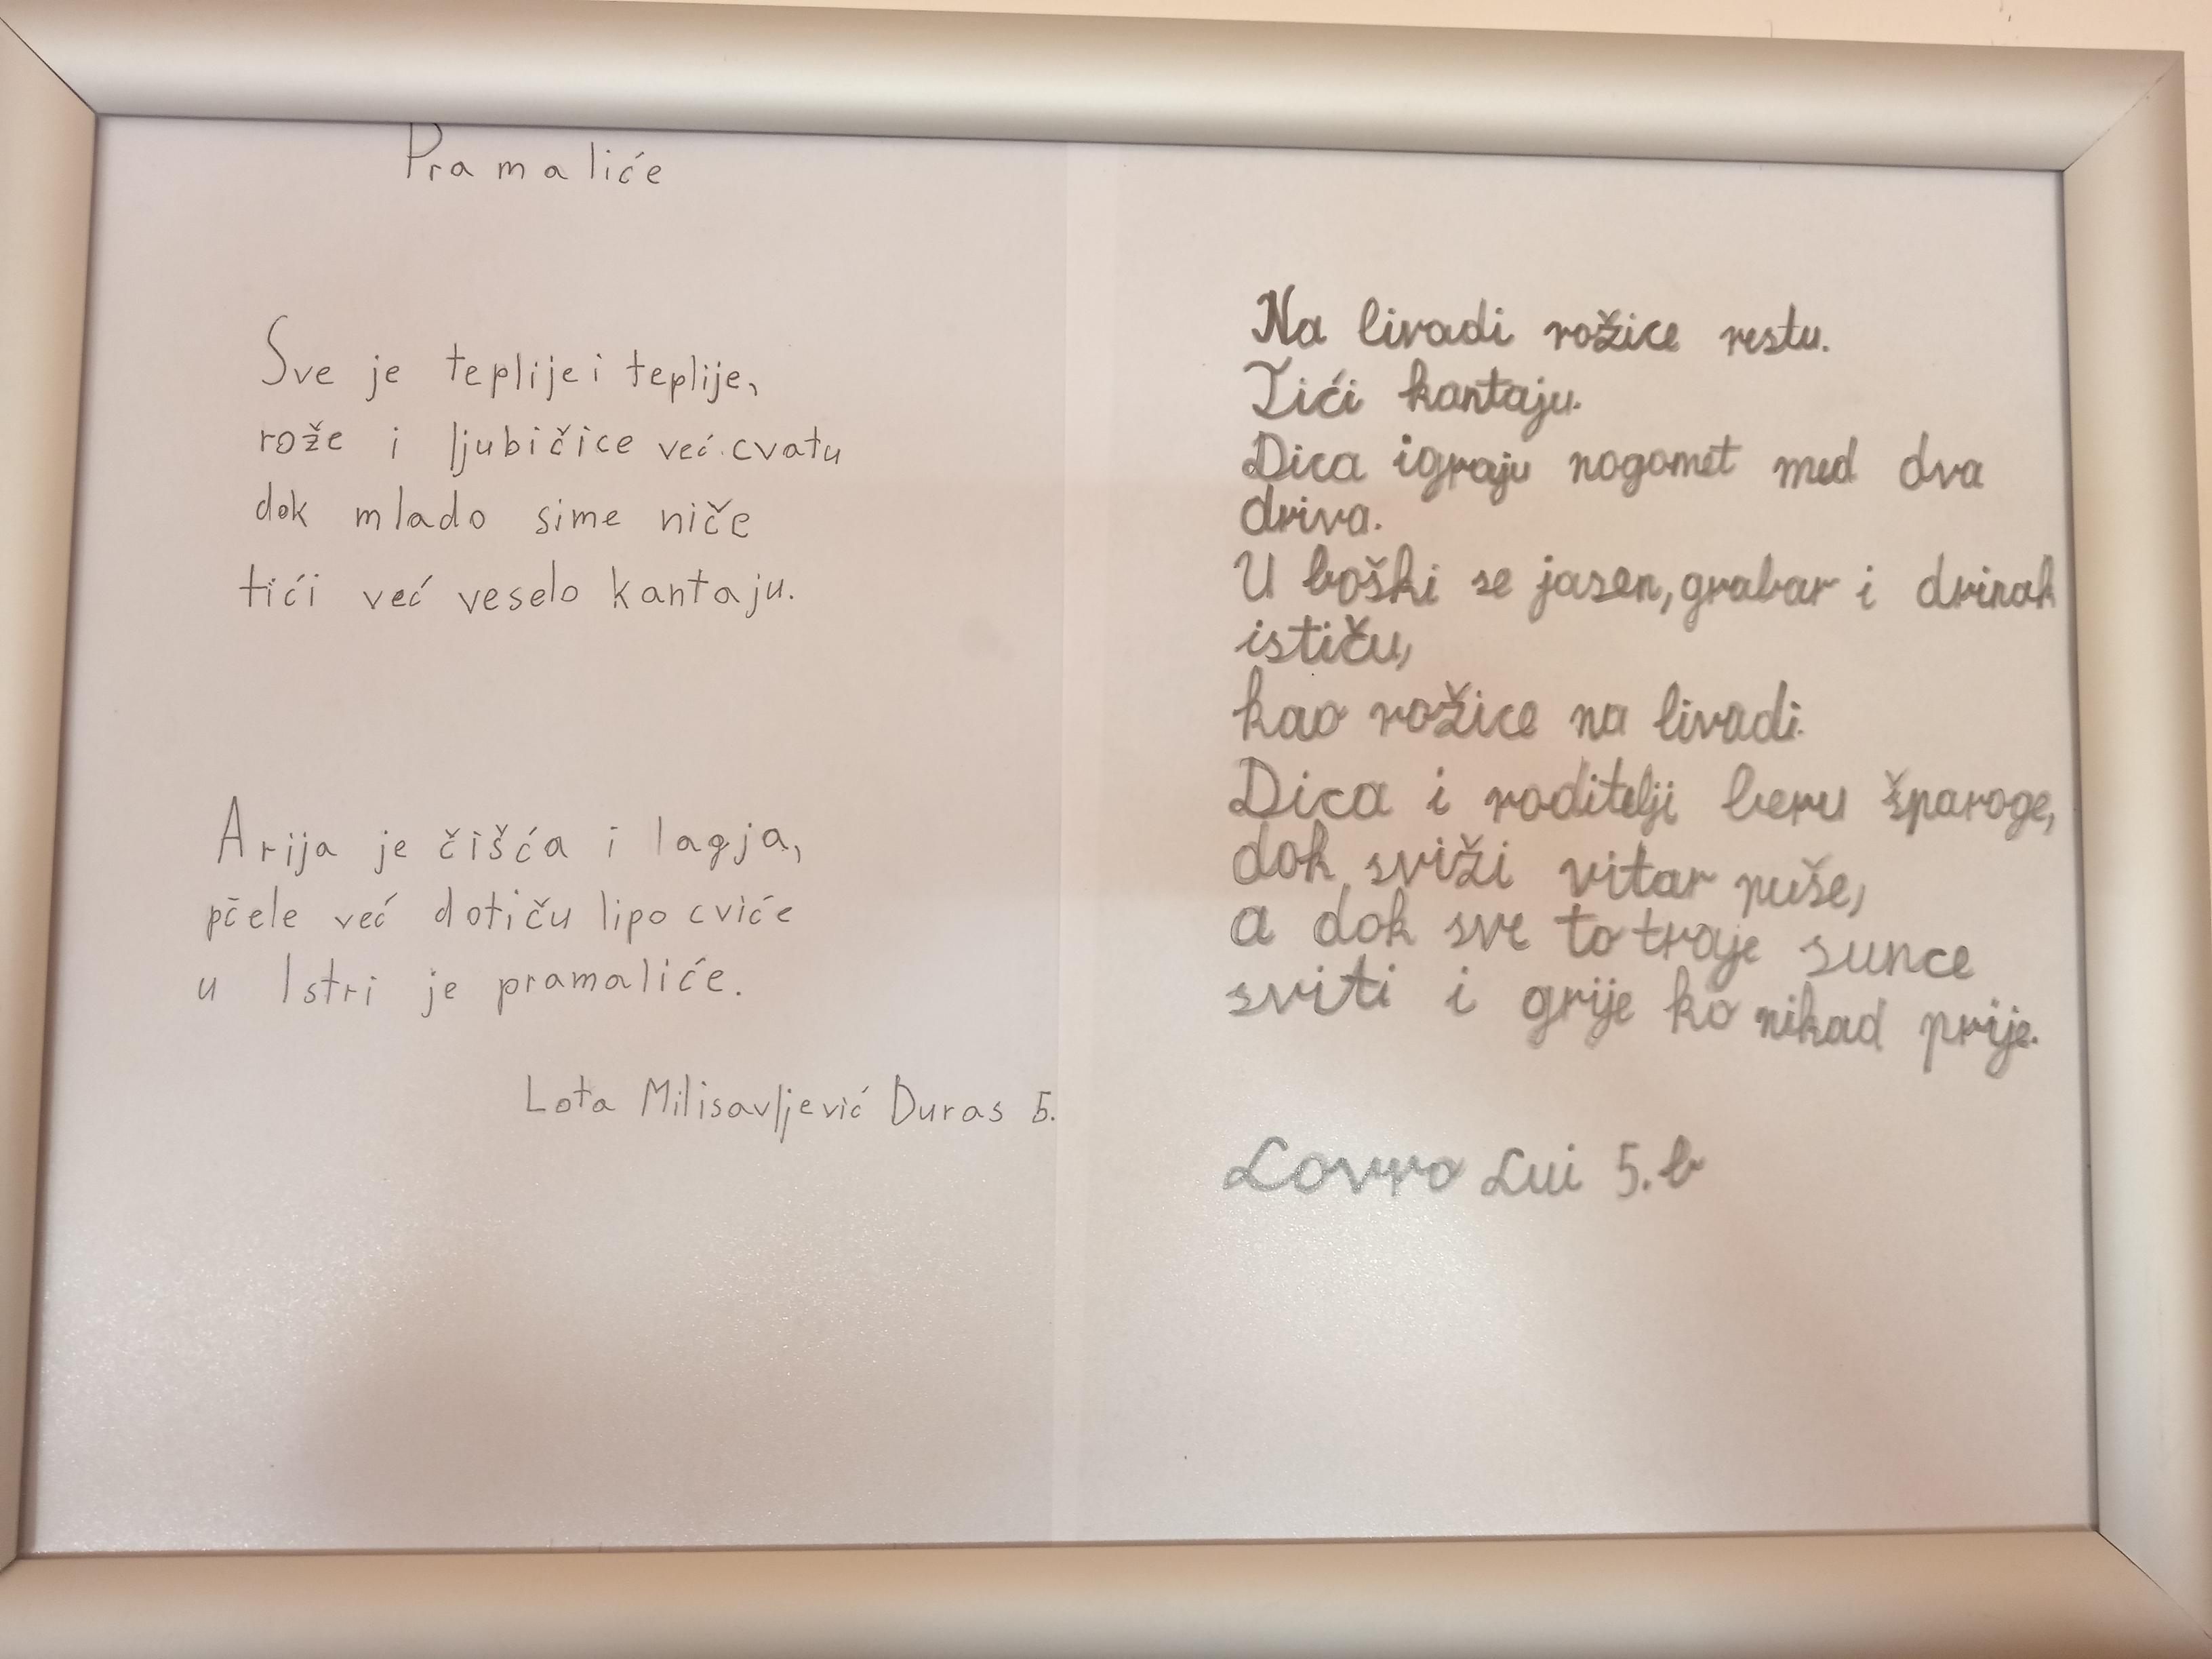 Pramaliće
Sve je teplije i teplije,
rože i ljubičice već cvatu
dok mlado sime niče
tići već veselo kantaju.
Arija je čišća i lagja,
pčele već dotiču lipo cviće
u Istri je pramaliće.
Lota Milisavljević Duras 5.
Na livadi rožice restu.
Tići kantaju.
Dica igraju nogomet med dva
driva.
U boški se jasen, grabar i drinak
ističu,
kao rožice na livadi.
Dica i roditelji beru šparoge,
dok sviži vitar puše,
a dok sve to traje sunce
sviti i grije ko nikad prije.
Lovro Lui 5.b